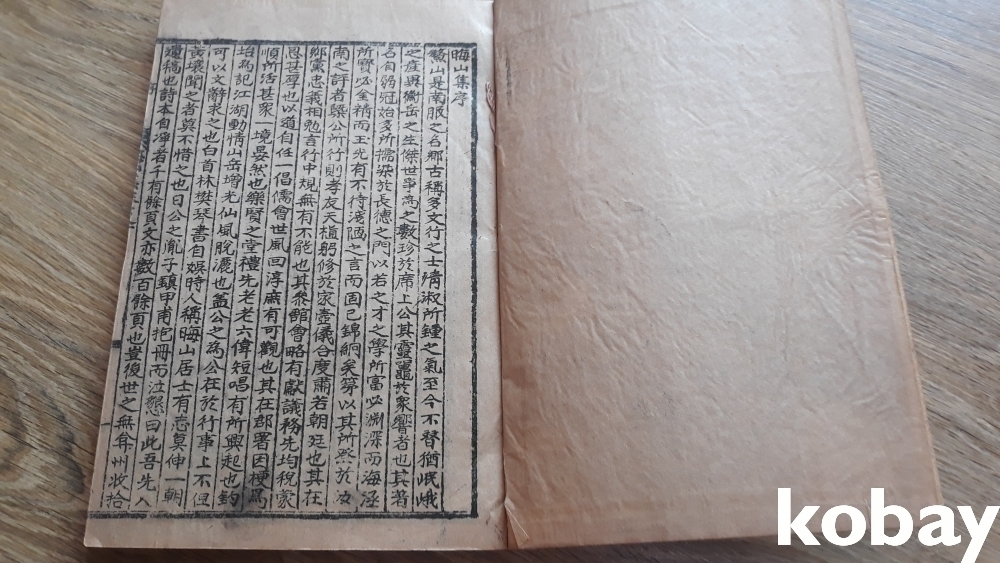 晦山集序
鰲山是南服之名鄉古稱多文行之士淸淑所鍾之氣至今不替猶岷峨
之産與衡岳之生傑世爭高之數珍於席上公其靈鼉於衆響者也其著
名自弱冠始多所擩染於長德之門以若之才之學所富必淵深而海涵
所寶必金精而玉光有不待淺陋之言而固已錦絅矣第以其所熟於汝
南之評者槩公所行則孝友天植躬修於家壼儀合度肅若朝廷也其在
鄕黨忠義相勉言行中規無有不能也其參館會略有獻議務先均稅蒙
恩甚厚也以道自任一倡儒會世風回淳麻有可觀也其在郡署因梗爲
順所活甚衆一境晏然也樂賢之堂禮先老老六偉短唱有所興起也釣
坮爲記江湖動情山岳增光仙風脫灑也蓋公之爲公在於行事上不但
可以文辭求之也白首林樊琴書自娛時人稱晦山居士有志莫伸一朝
黃壤聞之者莫不惜之也日公之胤子鎭甲甫抱冊而泣懇曰此吾先人
遺稿也詩本自澤者千有餘頁文亦數百餘頁也豈復世之無弇州收拾
kobay